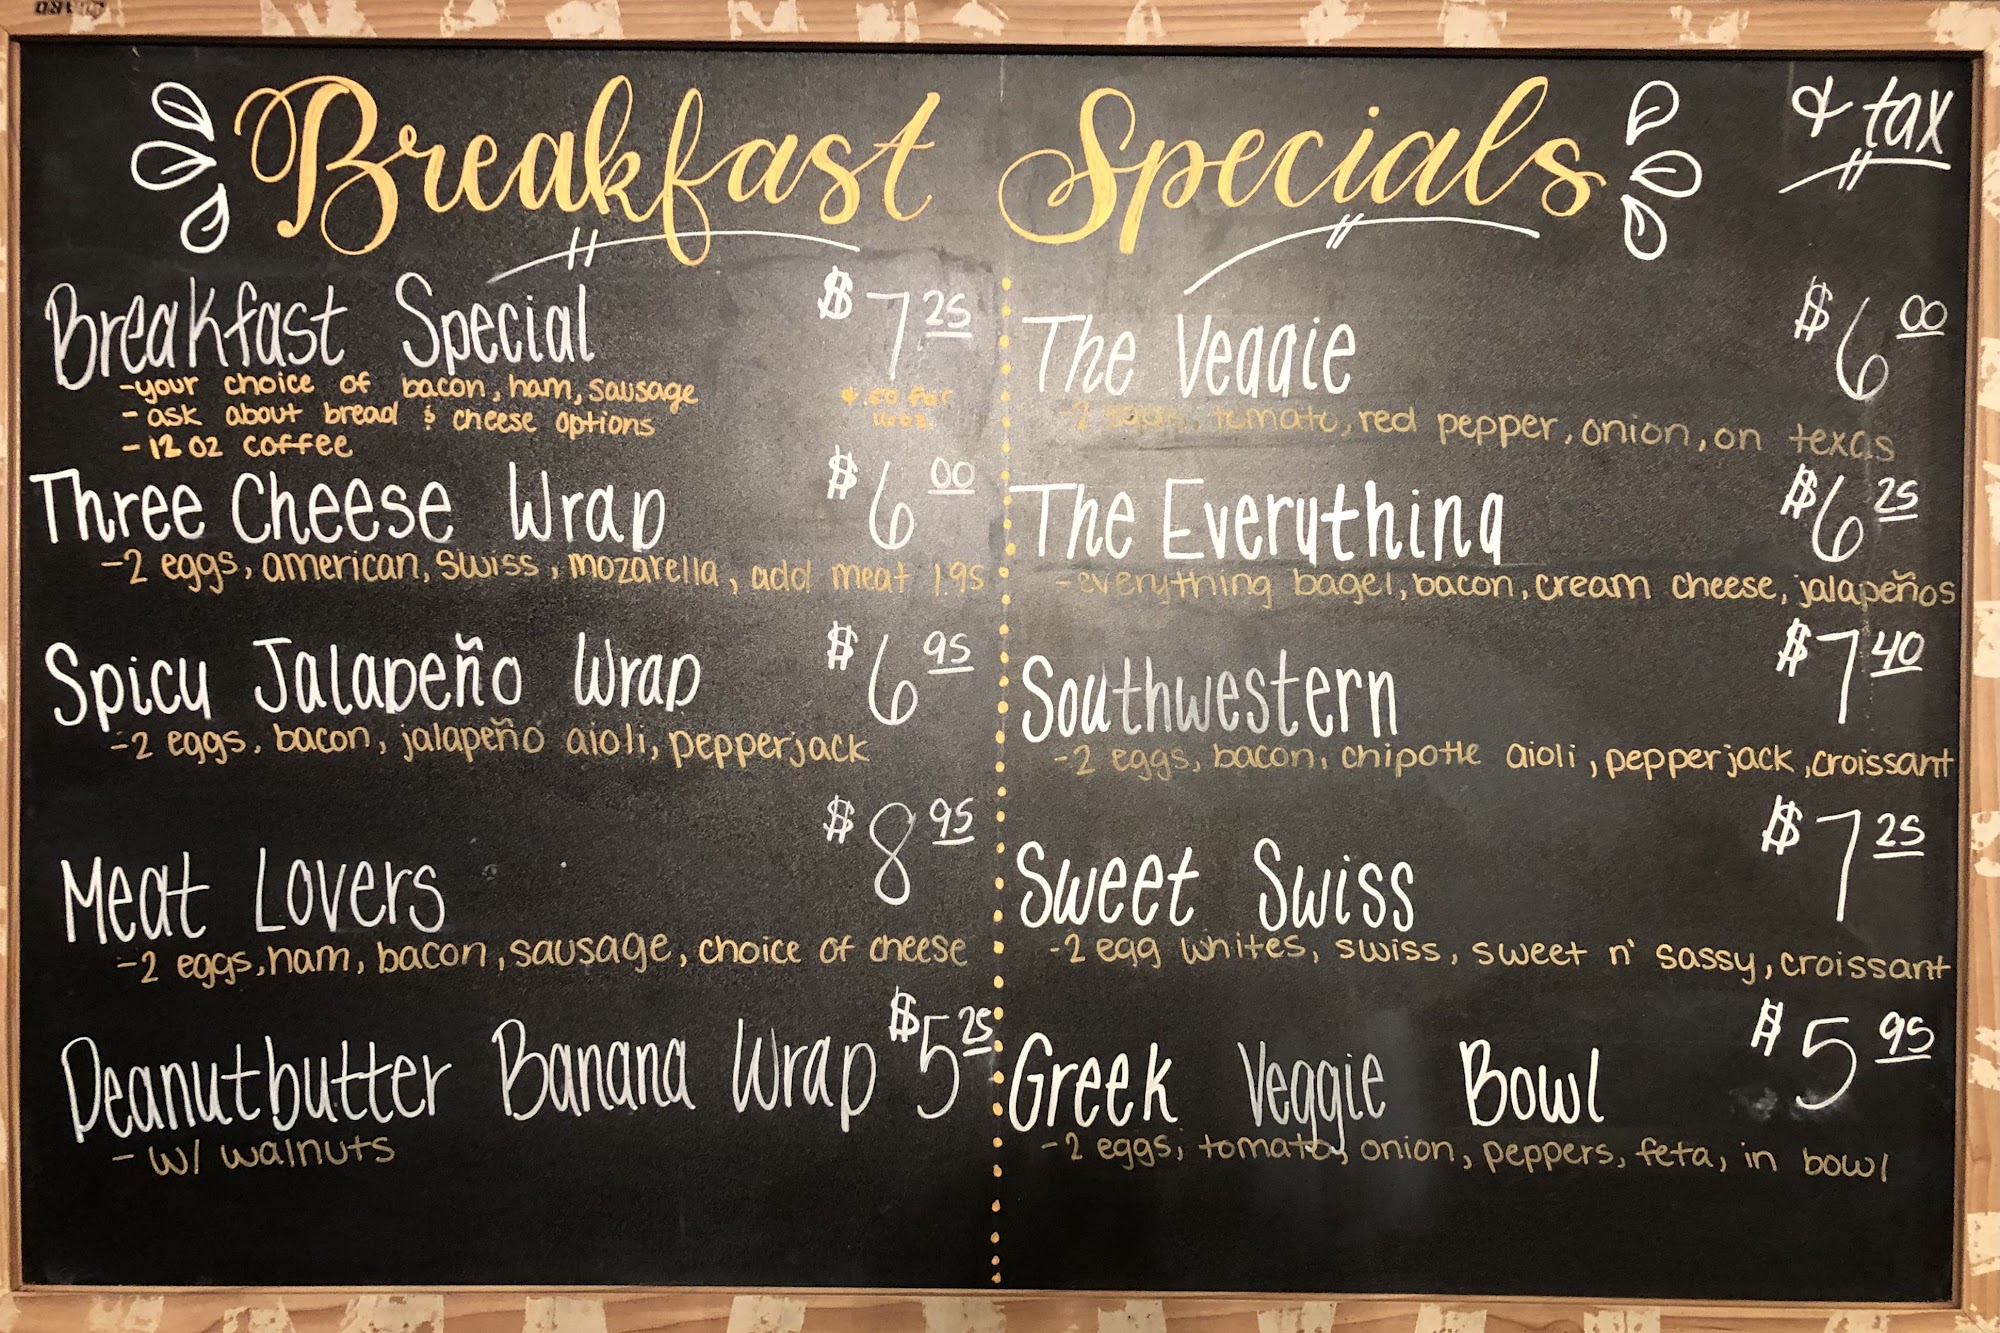 Breakfast Specials
& tax
Breakfast Special $7.25
-your choice of bacon, ham, sausage
- ask about bread & cheese options
- 12 oz coffee
+.50 for
Three Cheese Wrap $6.00
-2 eggs, american, swiss, mozarella, add meat 1.95
Spicy Jalapeño Wrap $6.95
-2 eggs, bacon, jalapeño aioli, pepperjack
Meat Lovers $8.95
-2 eggs, ham, bacon, sausage, choice of cheese
Peanutbutter Banana Wrap $5.25
- w/ walnuts
The Veggie $6.00
-2 eggs, tomato, red pepper, onion, on texas
The Everything $6.25
-everything bagel, bacon, cream cheese, jalapeños
Southwestern $7.40
-2 eggs, bacon, chipotle aioli, pepperjack, croissant
Sweet Swiss $7.25
-2 egg whites, swiss, sweet n' sassy, croissant
Greek Veggie Bowl $5.95
-2 eggs, tomato, onion, peppers, feta, in bowl